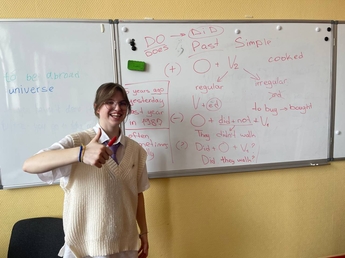 to be abroad
universe
DO → DID
DOES
Past Simple
(+) O + V2 cooked
regular irregular
V + ed 3rd
to buy → bought
5 years ago
yesterday
past year
in 1985
often
(-) O + did+not+V1
They didn't walk
(?) Did + O + V1?
Did they walk?